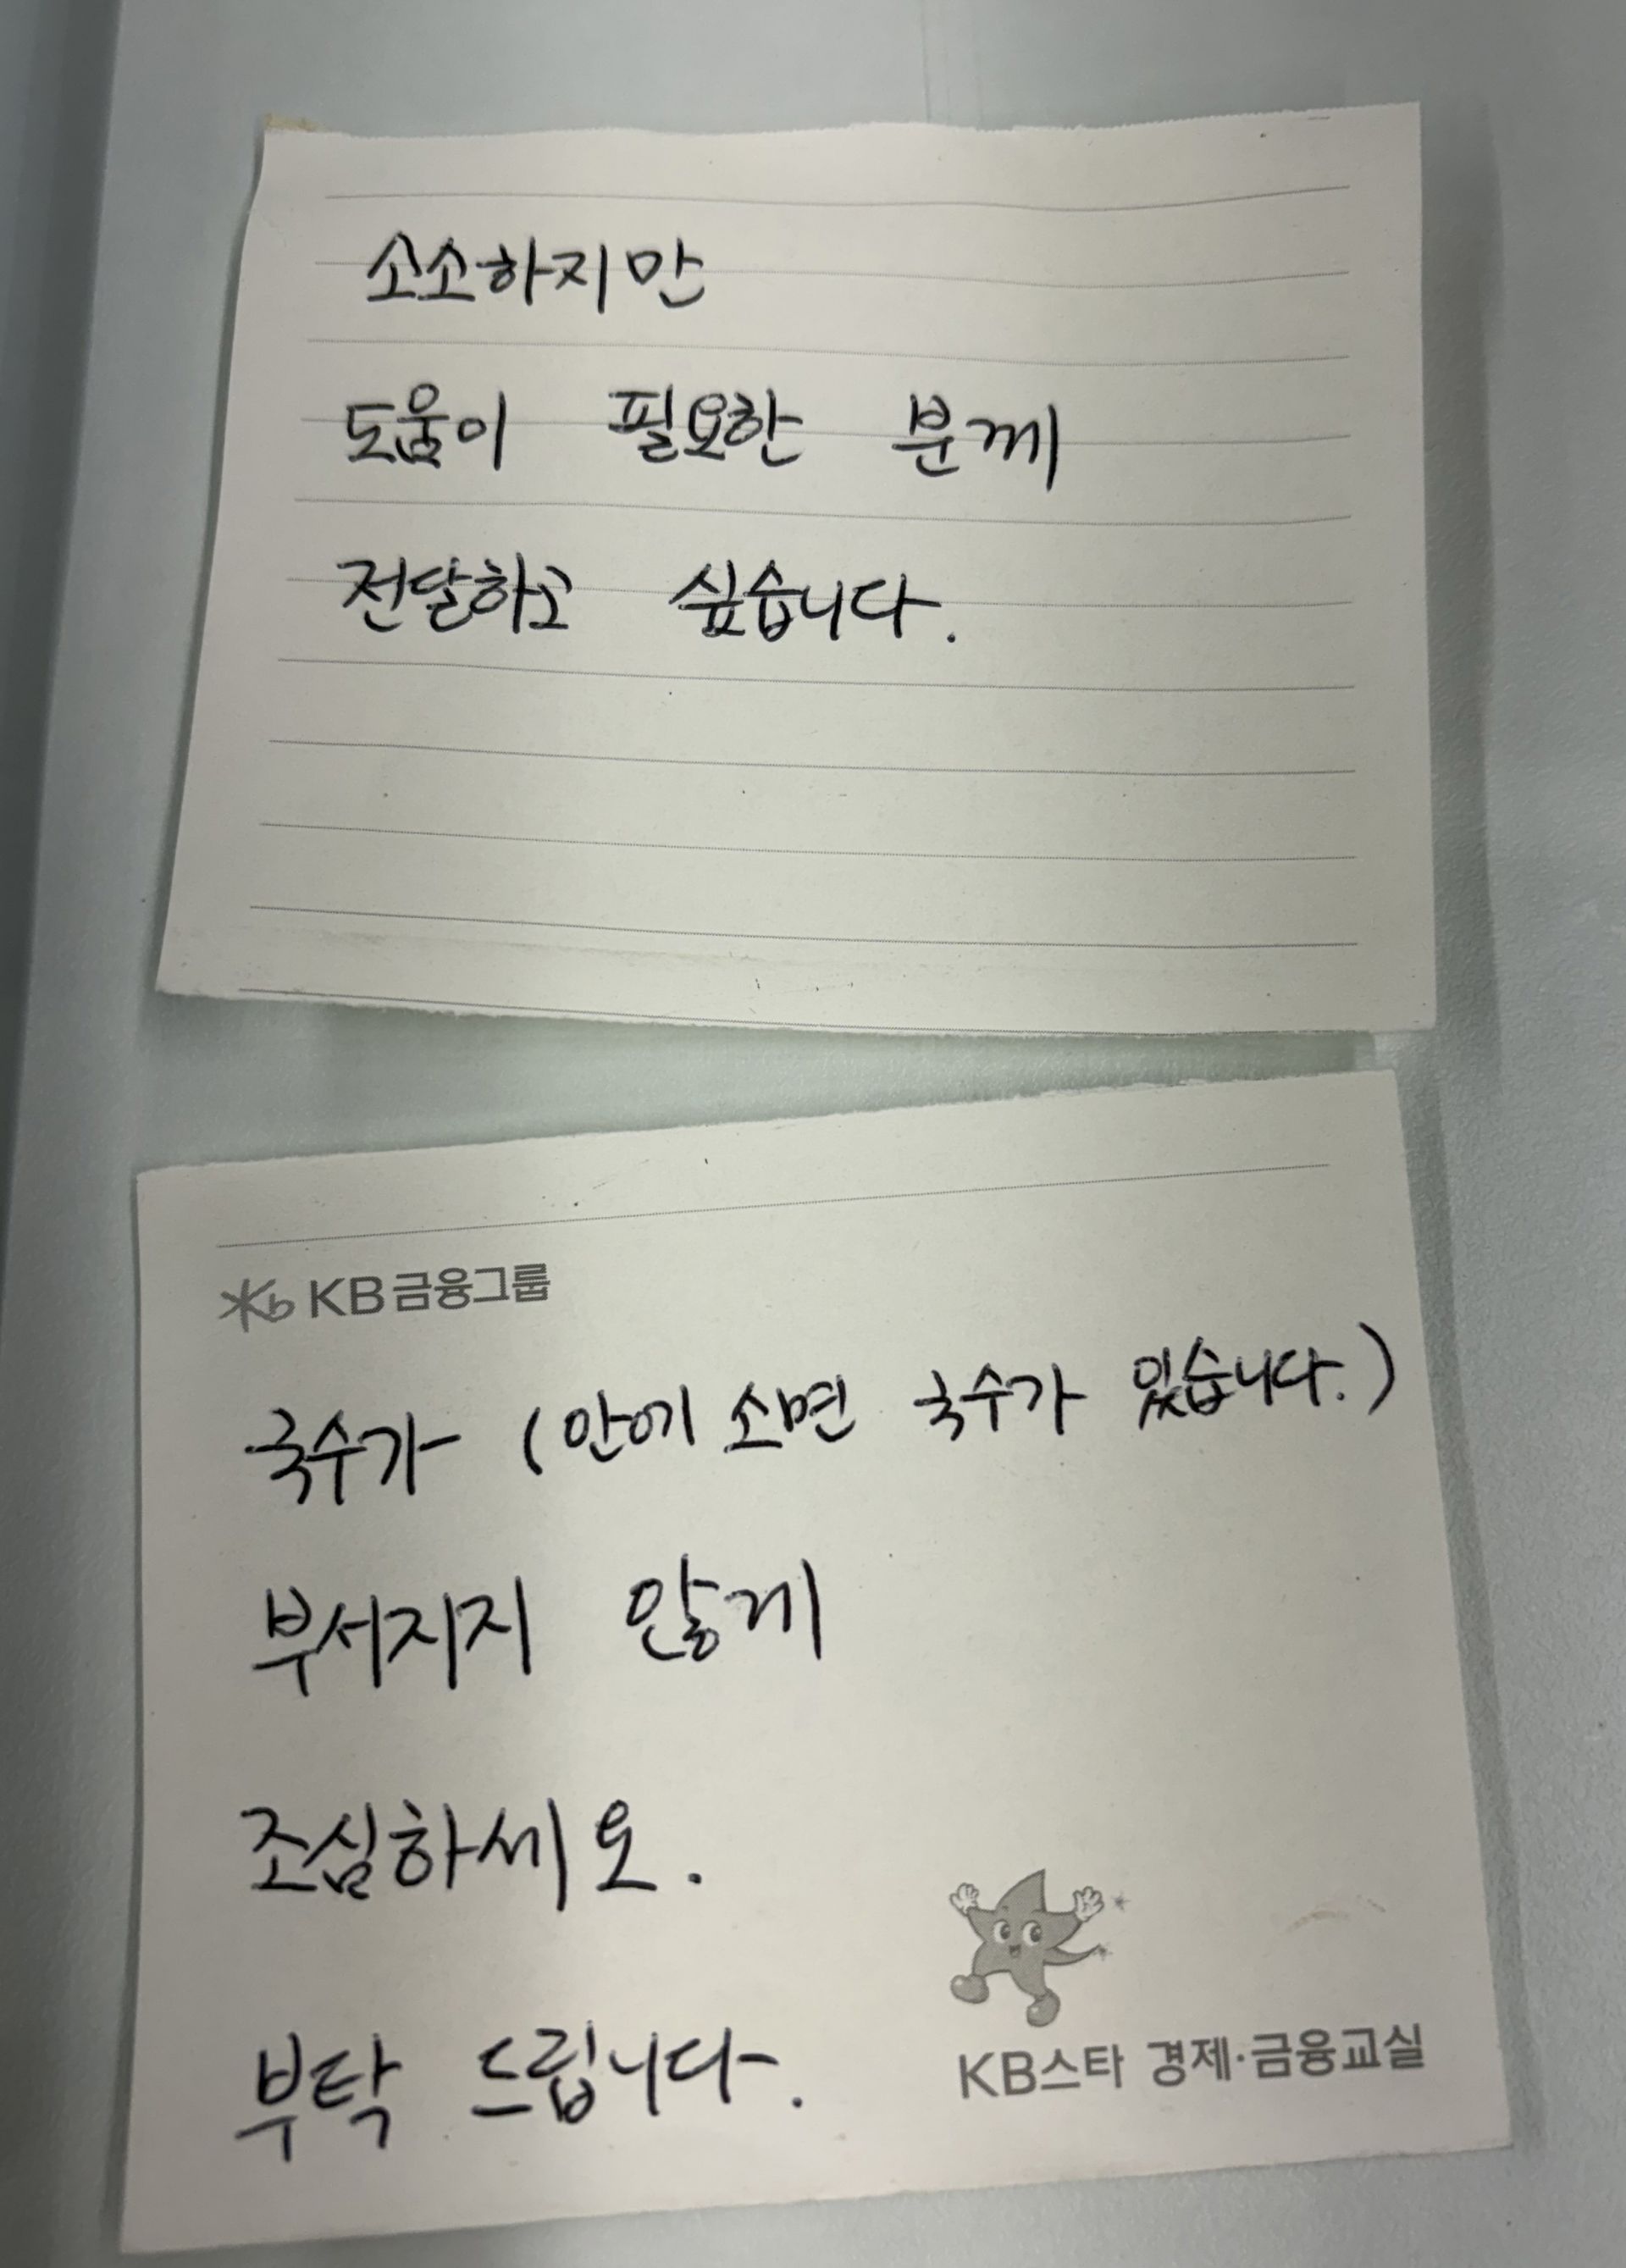 소소하지만
도움이 필요한 분께
전달하고 싶습니다.
KB 금융그룹
국수가 (안에 소면 국수가 있습니다.)
부서지지 않게
조심하세요.
부탁 드립니다.
KB스타 경제·금융교실